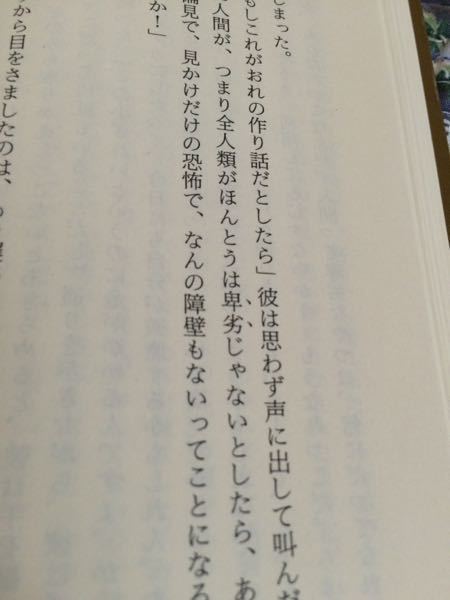 しまった。
もしこれがおれの作り話だとしたら」彼は思わず声に出して叫んだ
人間が、つまり全人類がほんとうは卑劣じゃないとしたら、あ
偏見で、見かけだけの恐怖で、なんの障壁もないってことになる
か！」
から目をさましたのは、